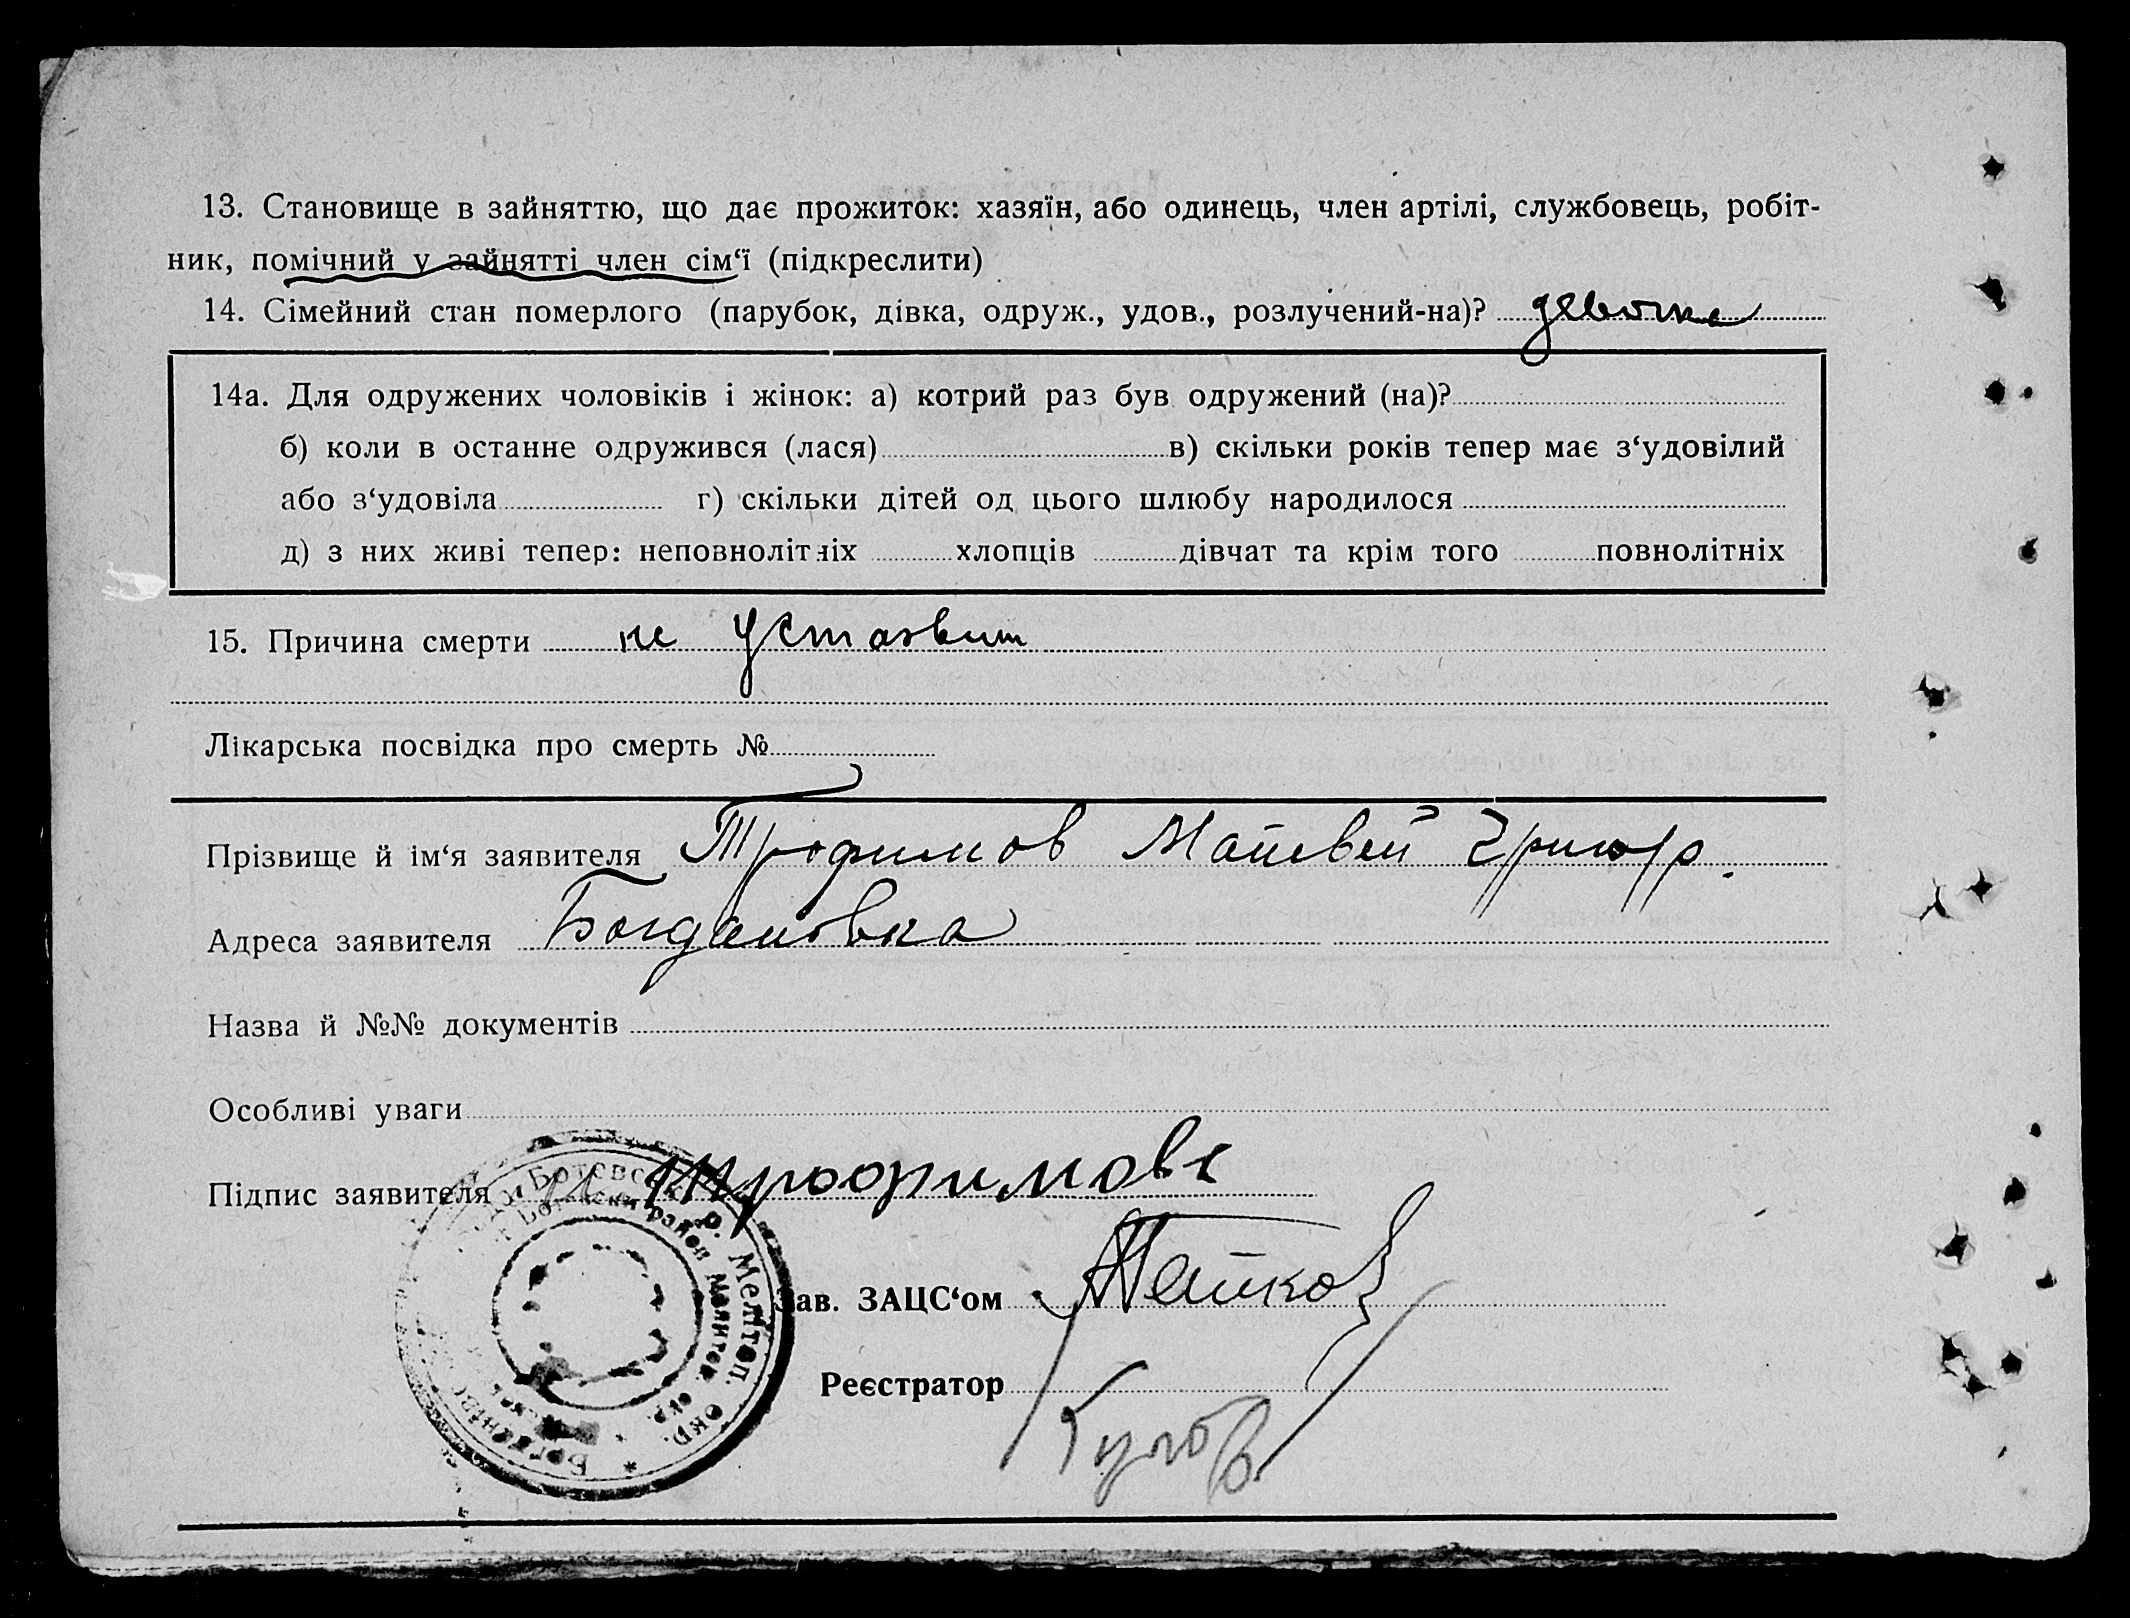 13. Становище в зайняттю, що дає прожиток: хазяїн, або одинець, член артілі, службовець, робіт-
ник, помічний у зайнятті член сім‘ї (підкреслити)
14. Сімейний стан померлого (парубок, дівка, одруж., удов., розлучений-на)? девочка
14а. Для одружених чоловіків і жінок: а) котрий раз був одружений (на)?
б) коли в останне одружився (лася) в) скільки років тепер має з‘удовілий
або з‘удовіла г) скільки дітей од цього шлюбу народилося
д) з них живі тепер: неповнолітніх хлопців дівчат та крім того повнолітніх
15. Причина смерти не
Лікарська посвідка про смерть №
Прізвище й ім‘я заявителя Трофимов Матвей Григор.
Адреса заявителя Богдановка
Назва й №№ документів
Особливі уваги
Підпис заявителя Трофимов
Зав. ЗАЦС‘ом
Реєстратор
Мелітоп. окр.